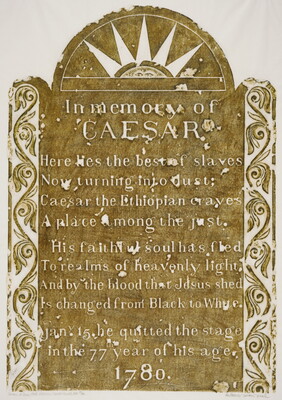 In memory of
CAESAR
Here lies the best of slaves
Now turning into dust;
Caesar the Ethiopian craves
A place among the just.
His faithful soul has fled
To realms of heavenly light,
And by the blood that Jesus shed
Is changed from Black to White.
Jan. 15, he quitted the stage
in the 77 year of his age.
1780.